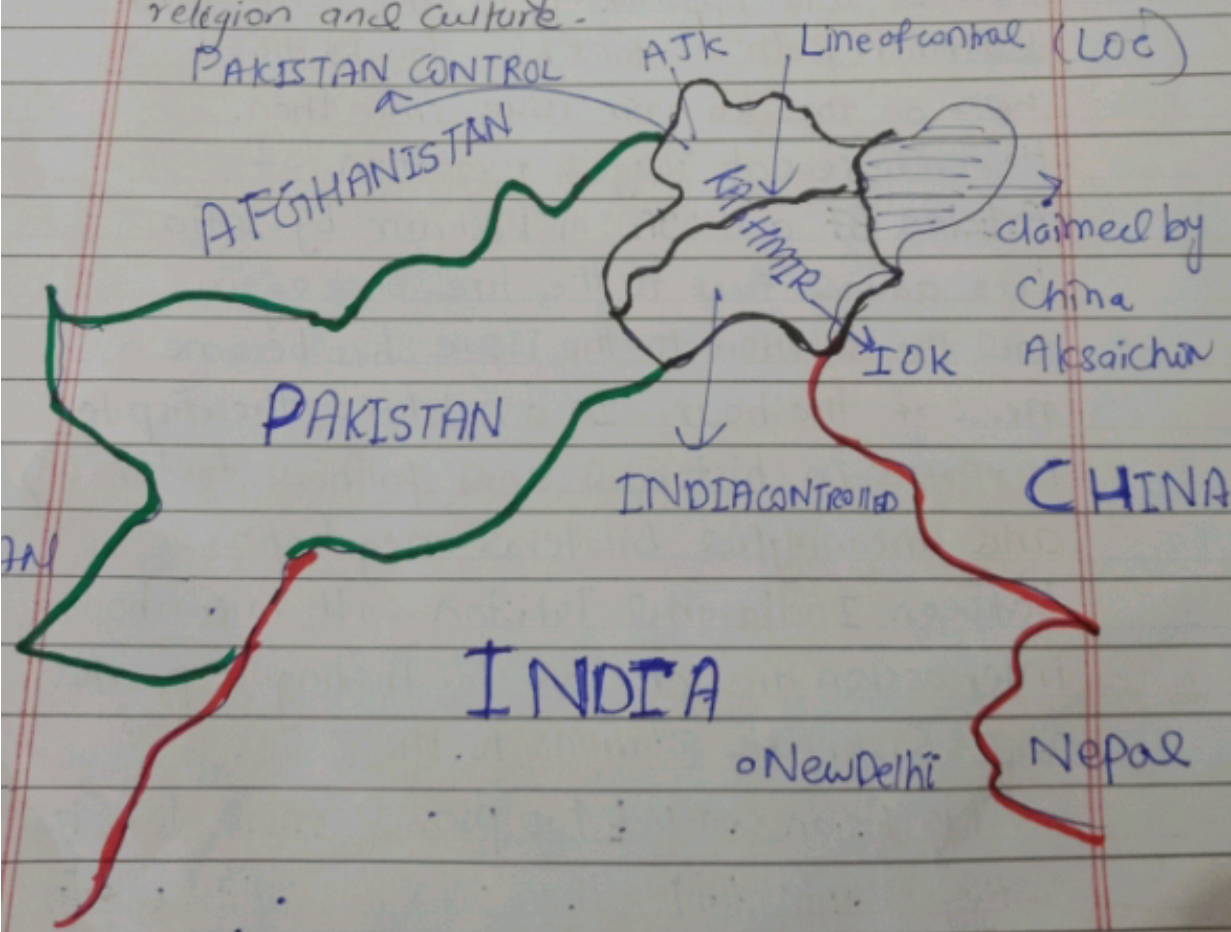 religion and culture.
PAKISTAN CONTROL
AJK
Line of control (LOC)
AFGHANISTAN
KASHMIR
claimed by
China
Aksaichin
IOK
PAKISTAN
INDIA CONTROllED
CHINA
AN
INDIA
New Delhi
Nepal